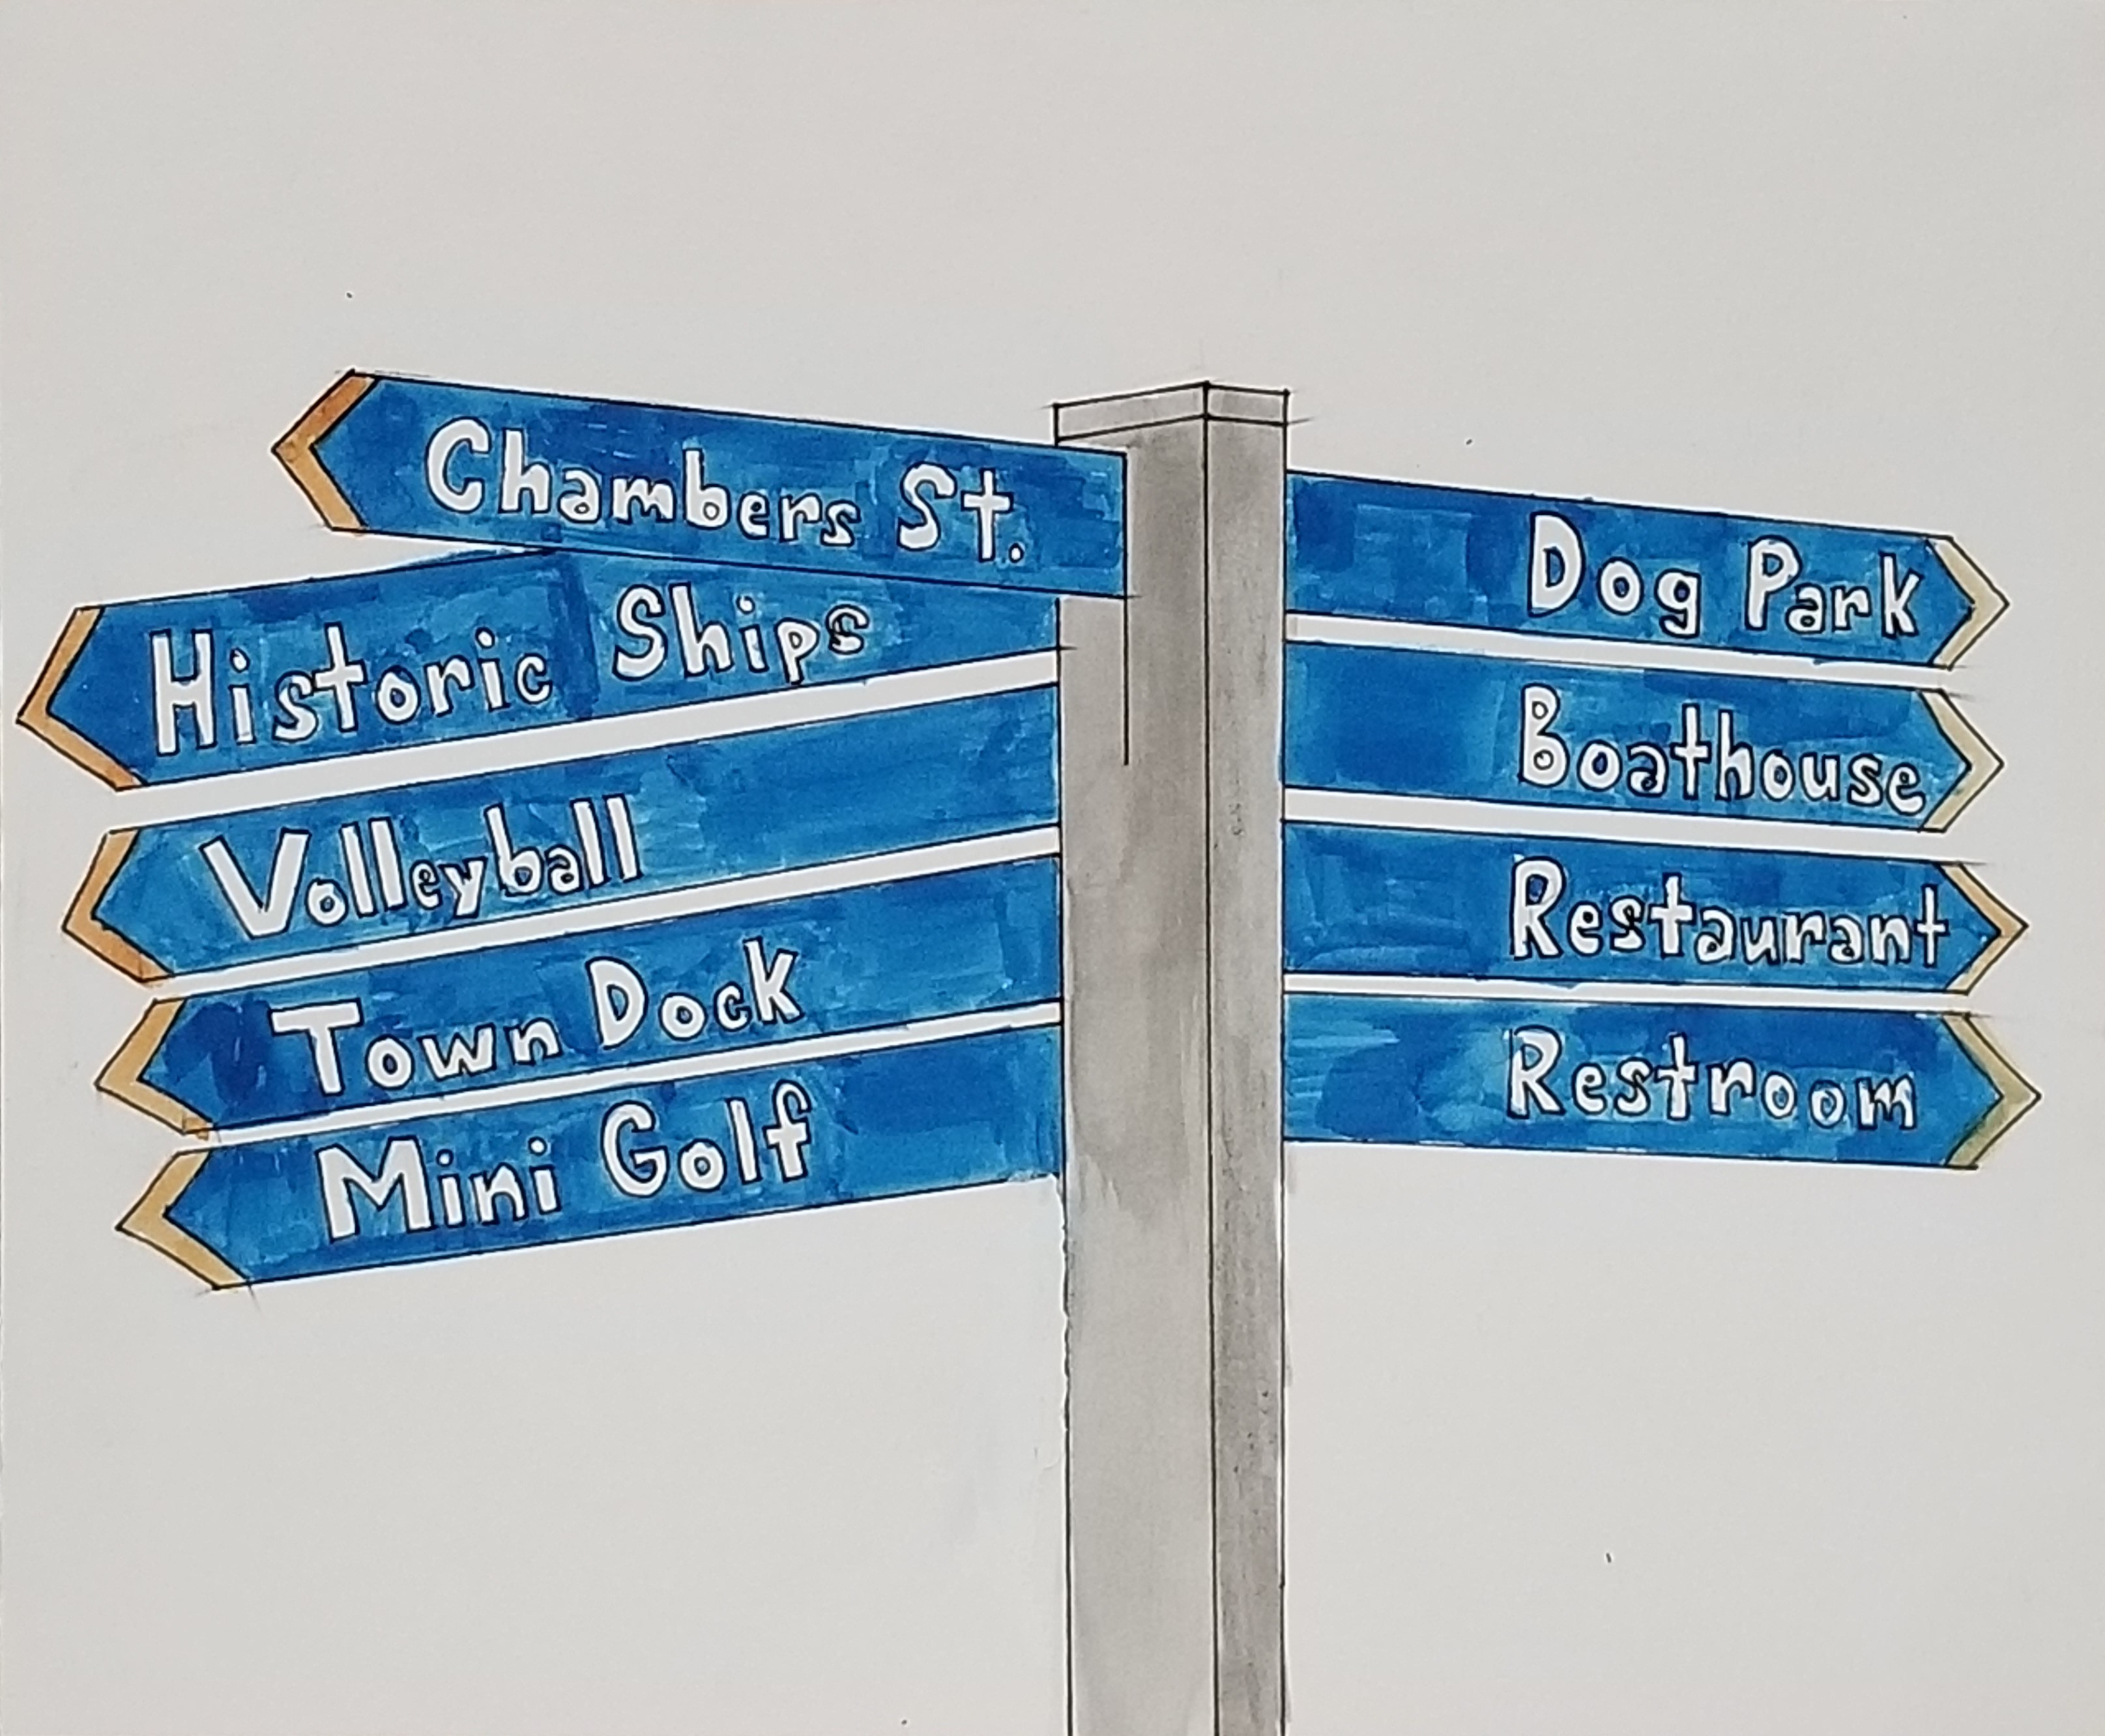 Chambers St.
Historic Ships
Volleyball
Town Dock
Mini Golf
Dog Park
Boathouse
Restaurant
Restroom